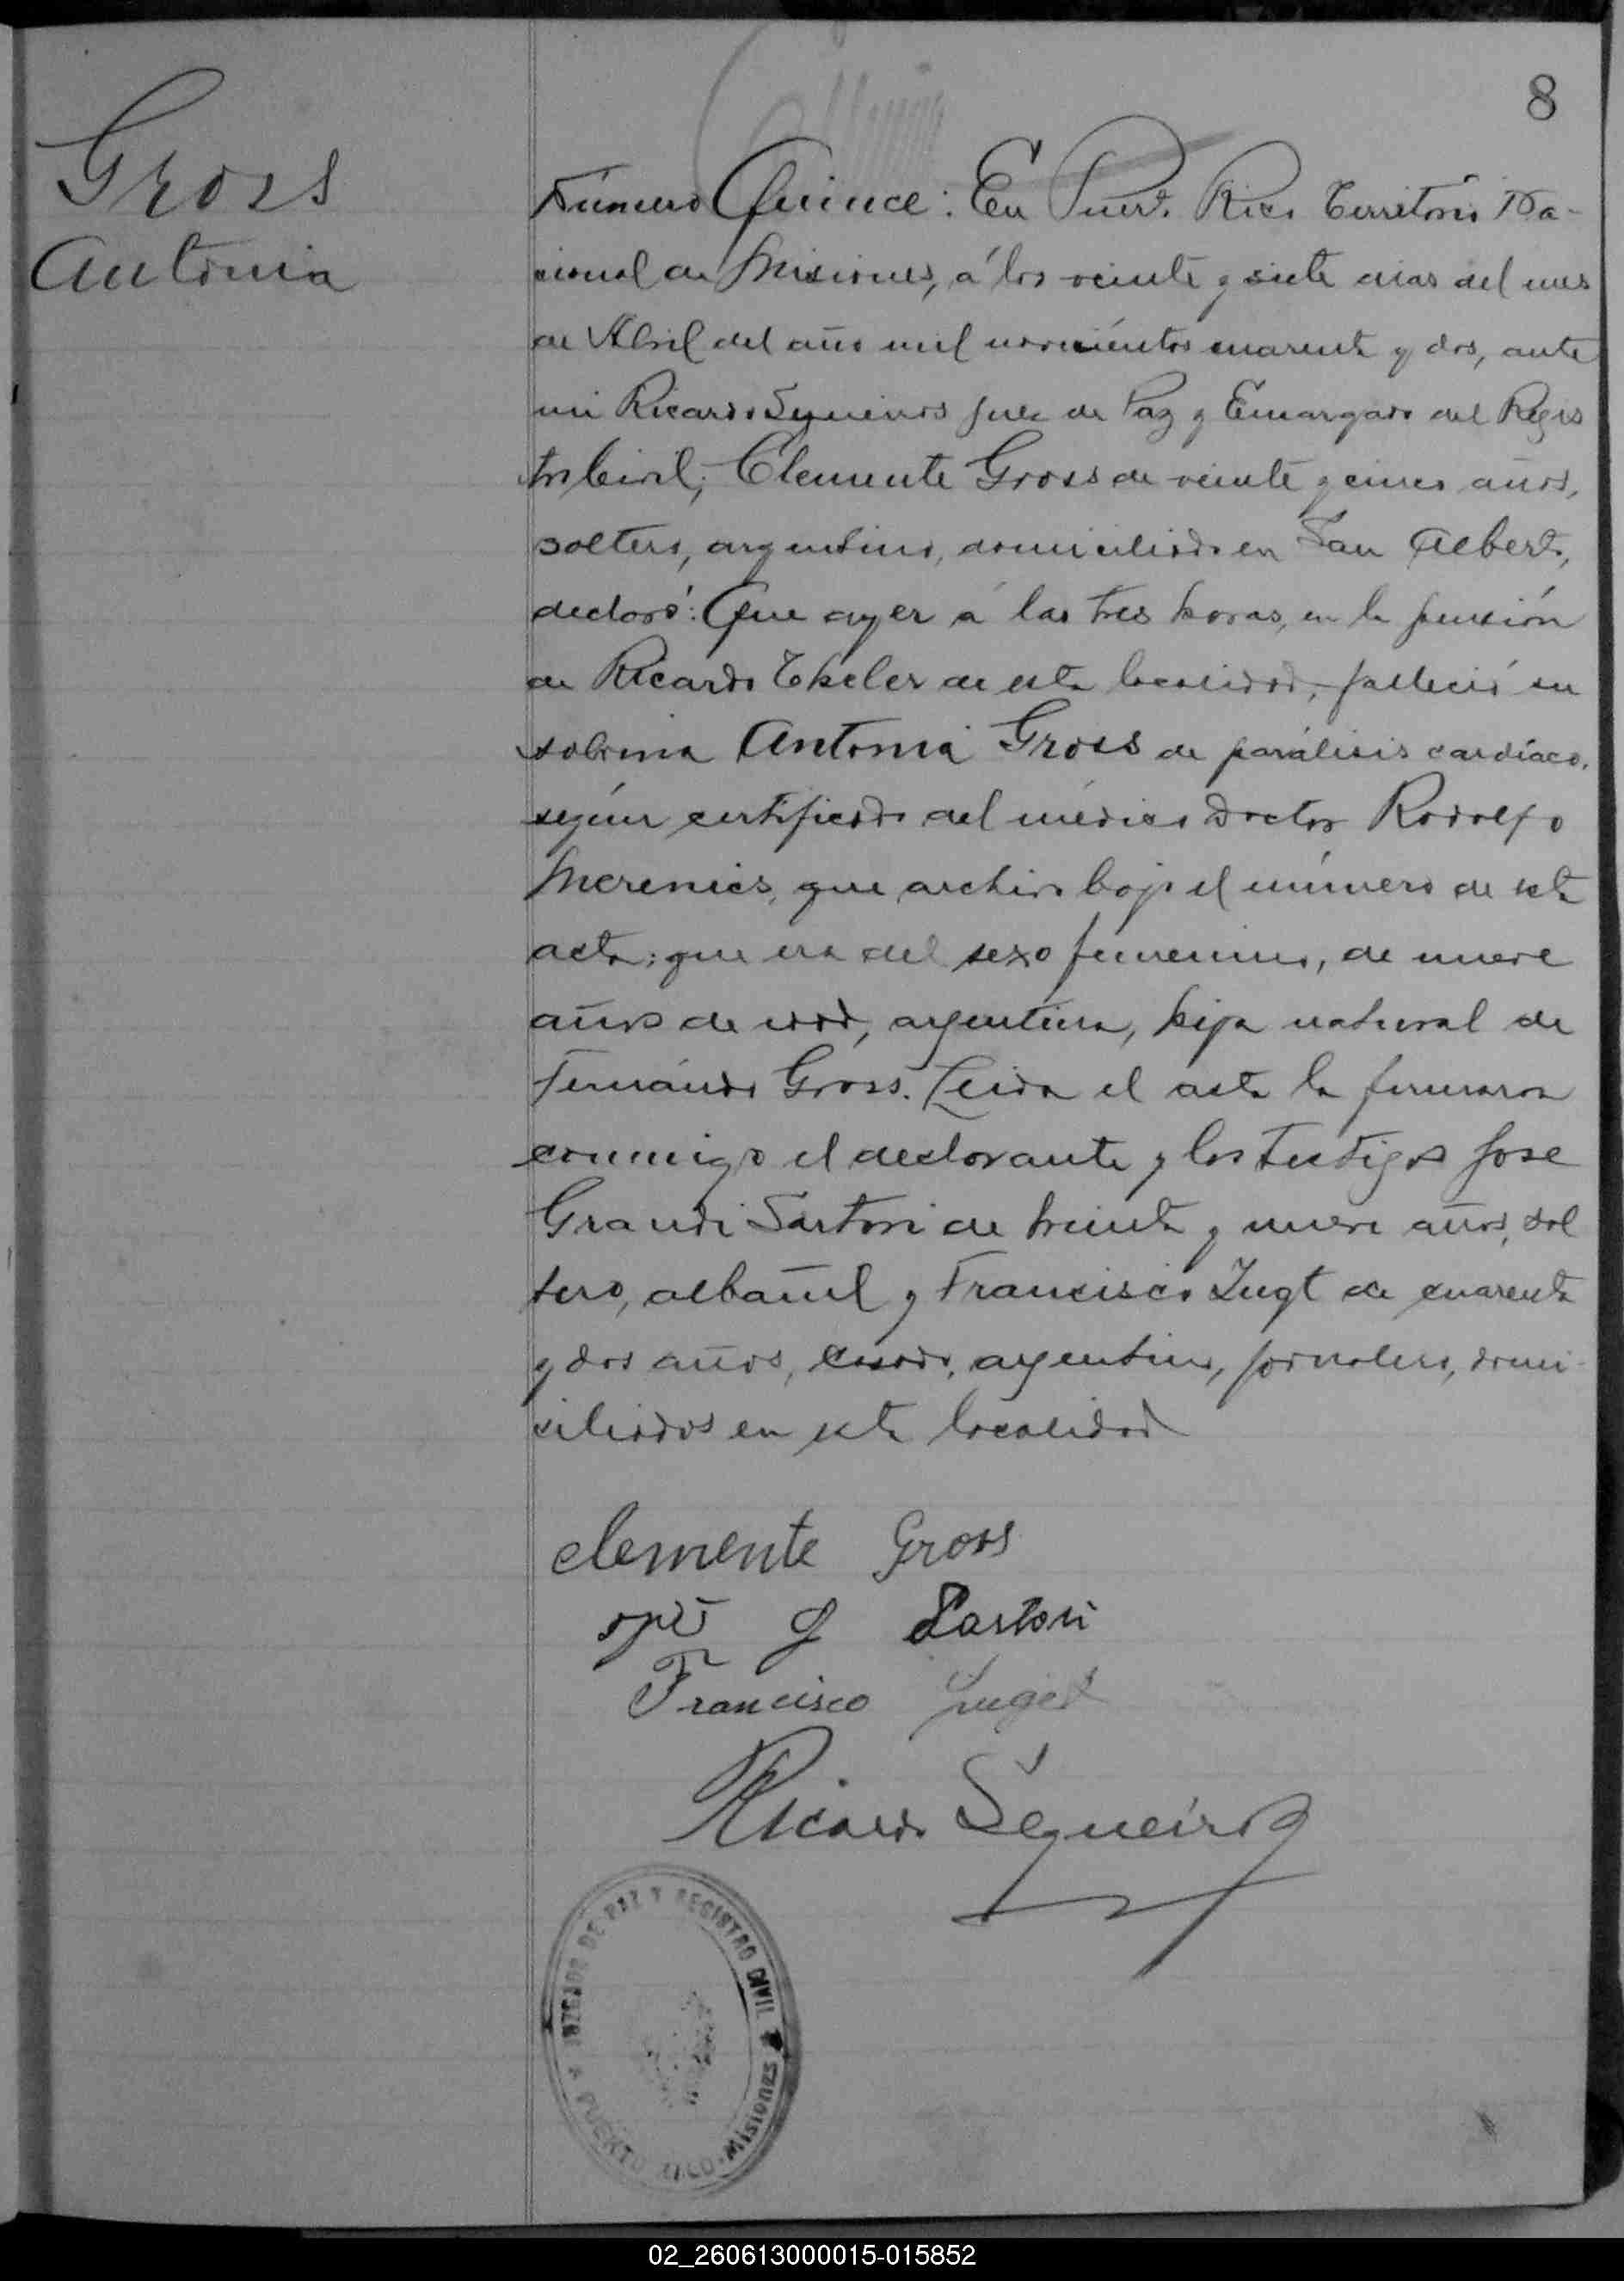 8
Gross
Antonia
Número Quince: En Puerto Rico Territorio Na-
cional de Misiones, á los veinte y siete dias del mes
de Abril del año mil novecientos cuarenta y dos, ante
mi Ricardo Sequeiros Juez de Paz y Encargado del Regis
tro Civil; Clemente Gross de veinte y cinco años,
soltero, argentino, domiciliado en San Alberto,
declaró: Que ayer á las tres horas, en la pensión
de Ricardo de esta localidad, falleció su
sobrina Antonia Gross de parálisis cardíaco,
según certificado del médico Doctor Rodolfo
que archivo bajo el número de esta
acta; que era del sexo femenino, de nueve
años de edad, argentina, hija natural de
Fernándo Gross. Leida el acta la firmaron
conmigo el declarante y los testigos Jose
Grandi Sartori de treinta y nueve años, sol
tero, albañil y Francisco de cuarenta
y dos años, casado, argentino, jornalero, domi-
ciliados en esta localidad
clemente Gross
G Sartori
Francisco
Ricardo Sequeiros
JUZGADO DE PAZ Y REGISTRO CIVIL
PUERTO RICO - Misiones
02_260613000015-015852